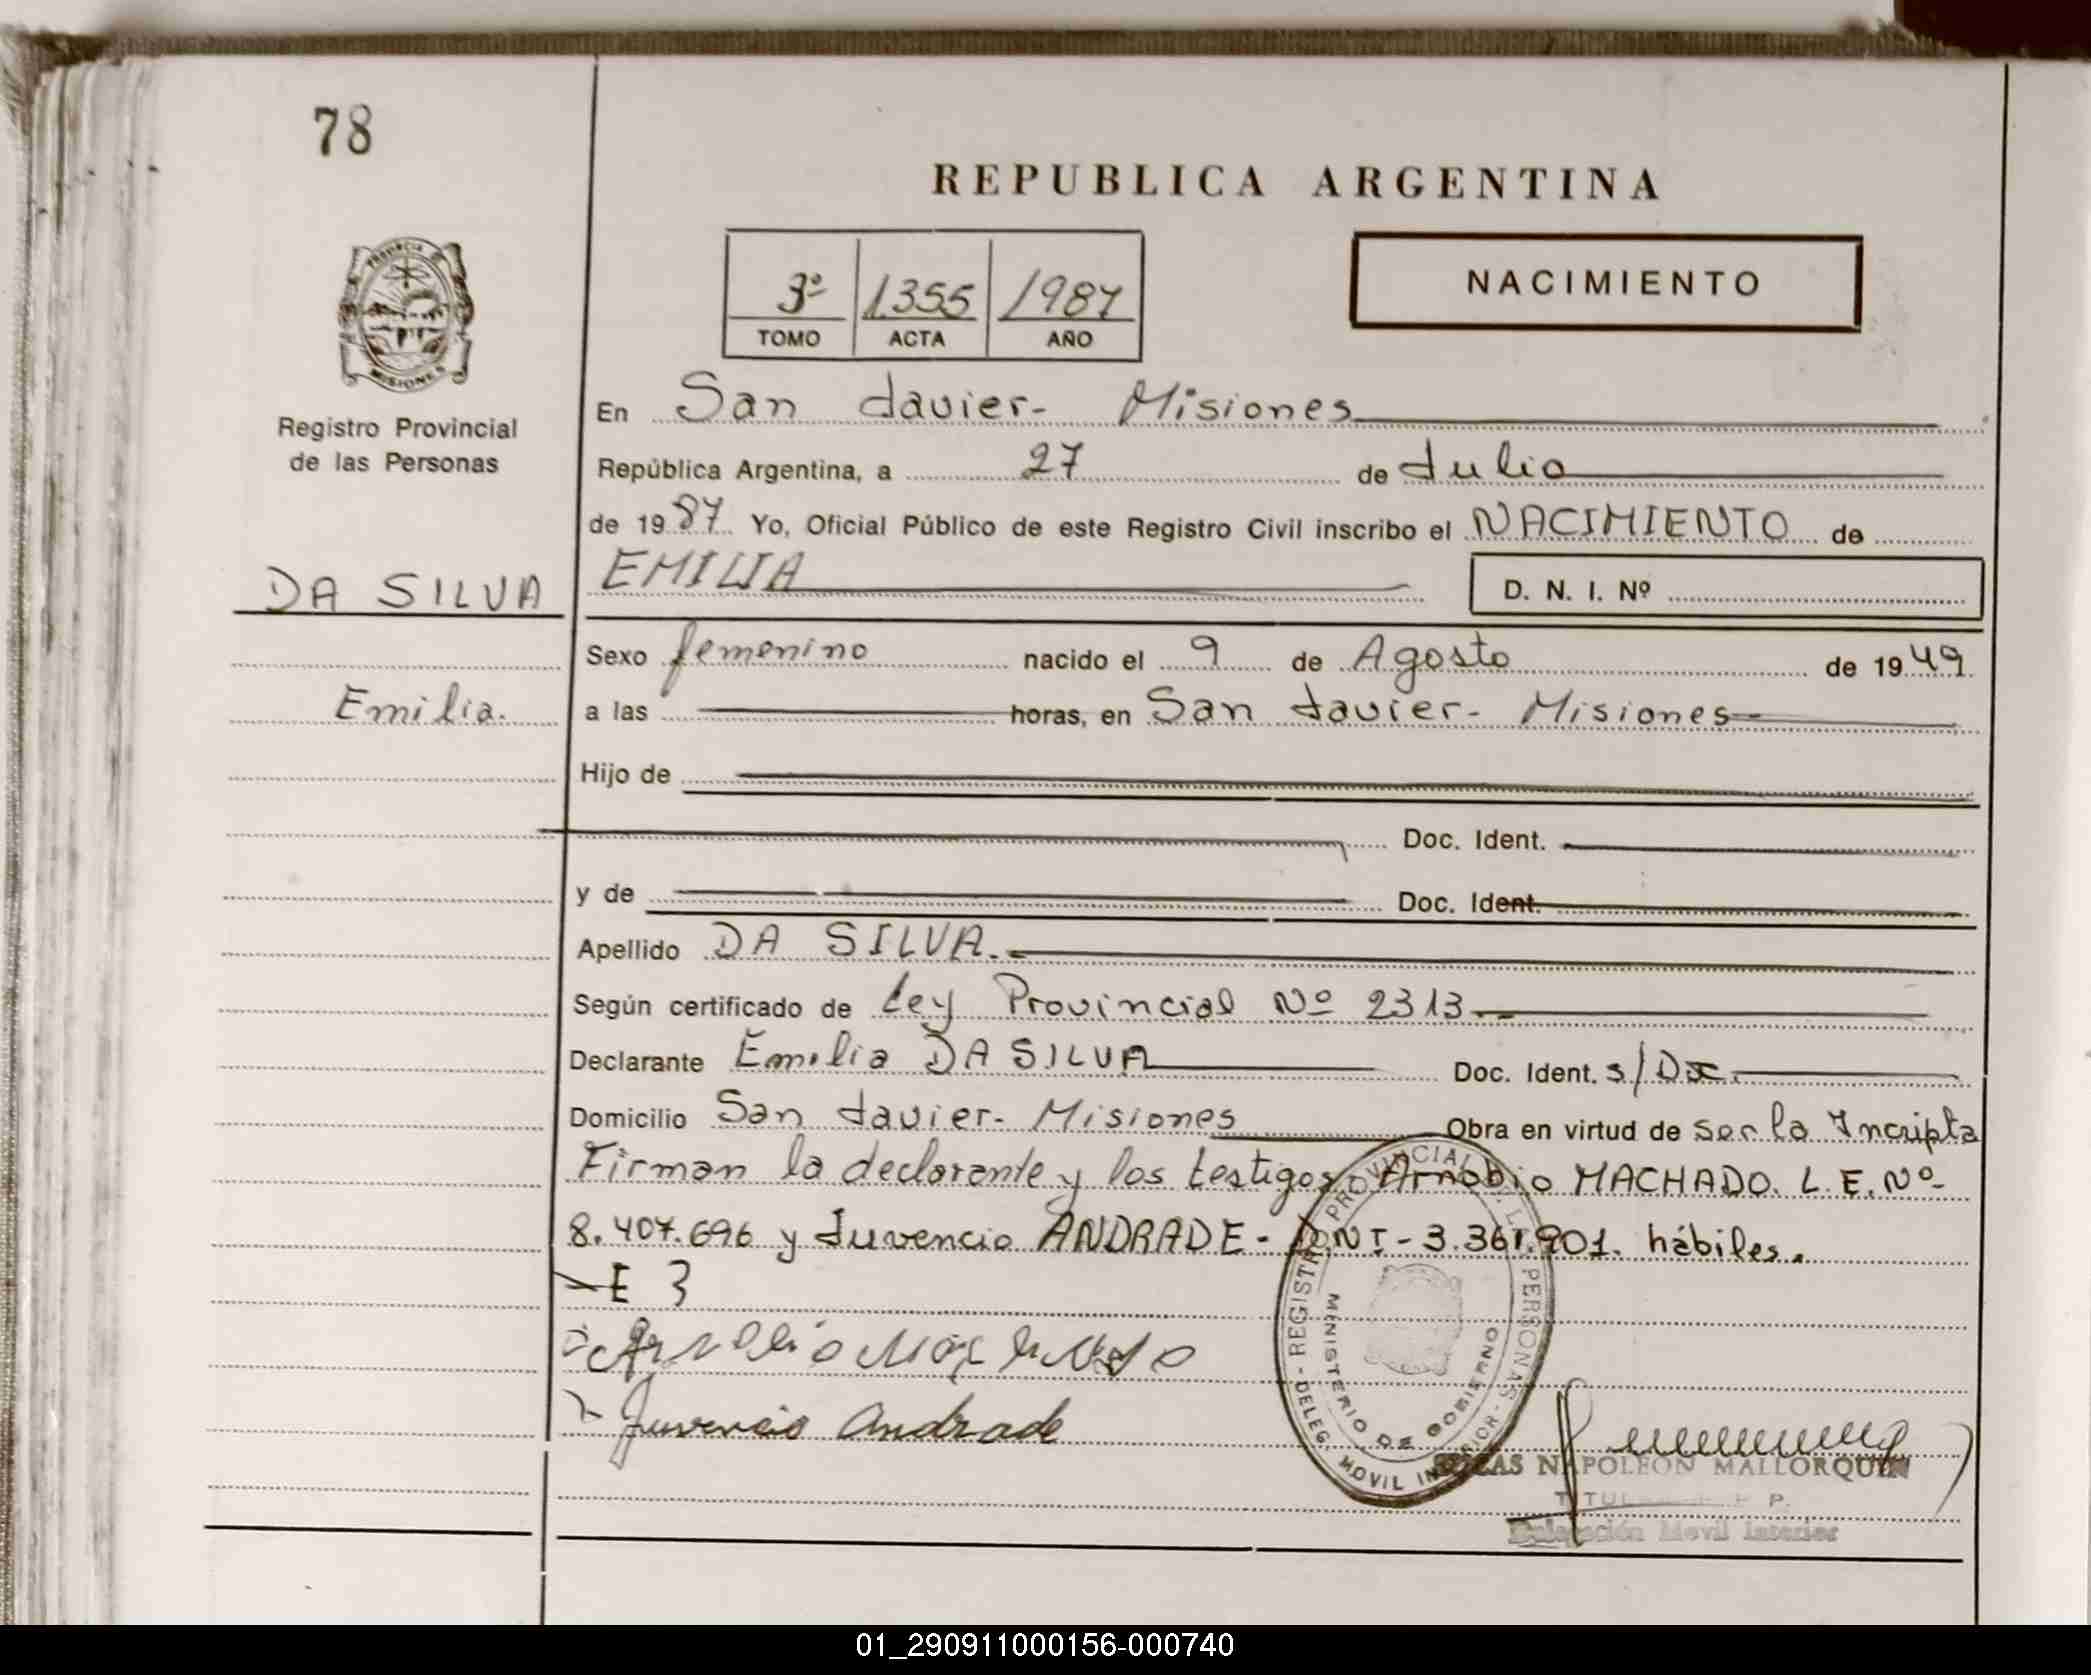 78
REPUBLICA ARGENTINA
PROVINCIA DE MISIONES
3º 1355 1987
TOMO ACTA AÑO
NACIMIENTO
Registro Provincial
de las Personas
En San Javier- Misiones
República Argentina, a 27 de Julio
de 1987 Yo, Oficial Público de este Registro Civil inscribo el NACIMIENTO de
DA SILVA EMILIA D. N. I. Nº
Sexo femenino nacido el 9 de Agosto de 1949
Emilia. a las horas, en San Javier- Misiones
Hijo de
Doc. Ident.
y de Doc. Ident.
Apellido DA SILVA.
Según certificado de Ley Provincial Nº 2313
Declarante Emilia DA SILVA Doc. Ident. s/DI.
Domicilio San Javier- Misiones Obra en virtud de ser la Incripta
Firman la declarante y los testigos Arnobio MACHADO. L.E.Nº-
8.407.696 y Juvencio ANDRADE - DNI - 3.361.901. hábiles.
E 3
Juvencio Andrade
REGISTRO PROVINCIAL DE LAS PERSONAS - DELEG. MOVIL INTERIOR -
MINISTERIO DE GOBIERNO
NAPOLEON MALLORQUIN
Delegación Movil Interior
01_290911000156-000740